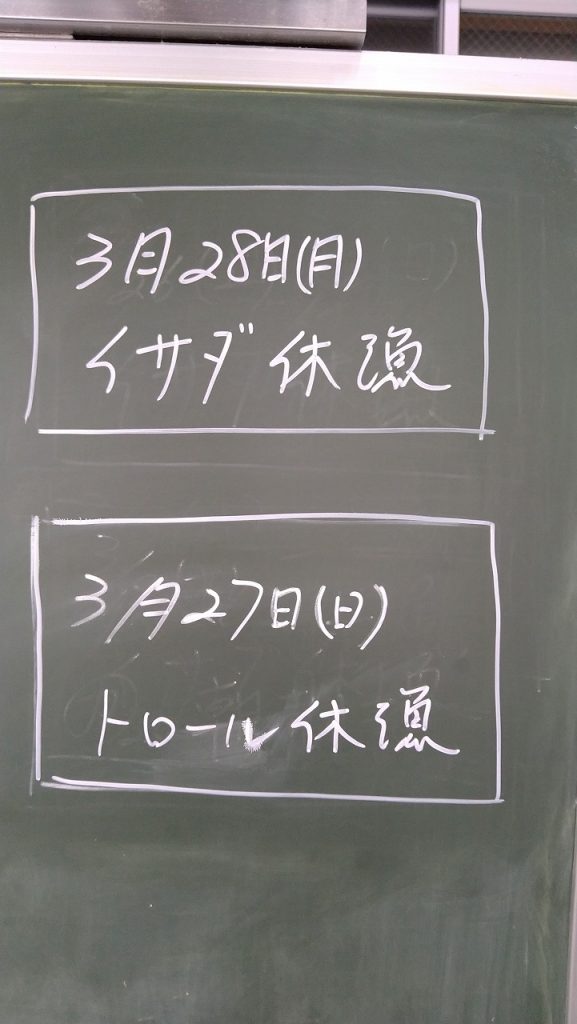 3月28日(月)
イサダ休漁
3月27日(日)
トロール休漁